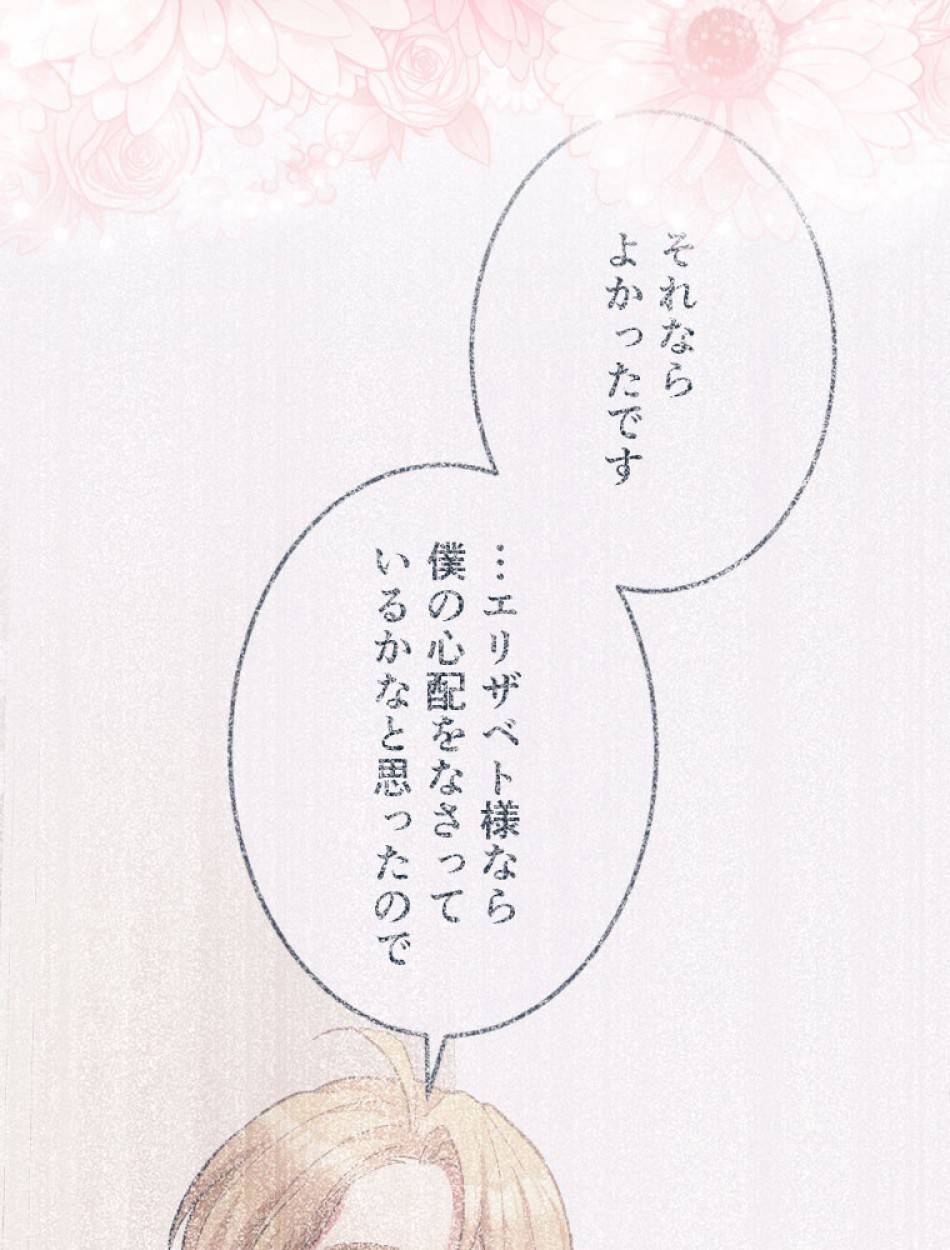 それなら
よかったです
…エリザベト様なら
僕の心配をなさって
いるかなと思ったので